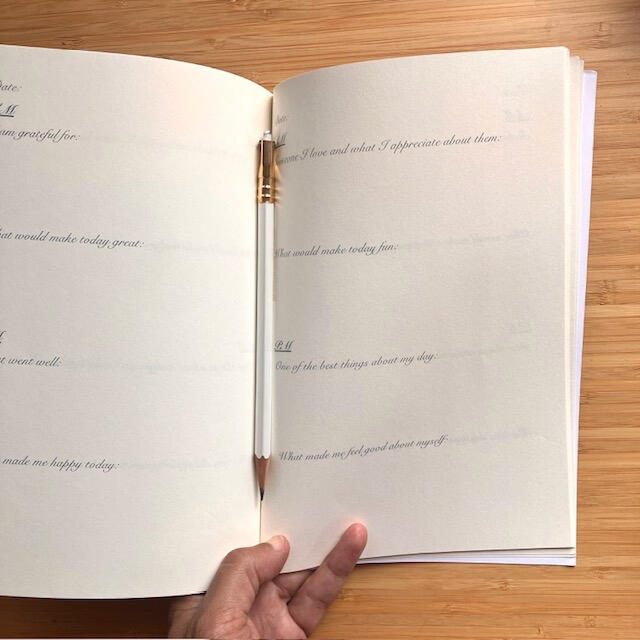 Date:
A.M
am grateful for:
hat would make today great:
t went well:
made me happy today:
Date:
Someone I love and what I appreciate about them:
What would make today fun:
P.M
One of the best things about my day:
What made me feel good about myself: